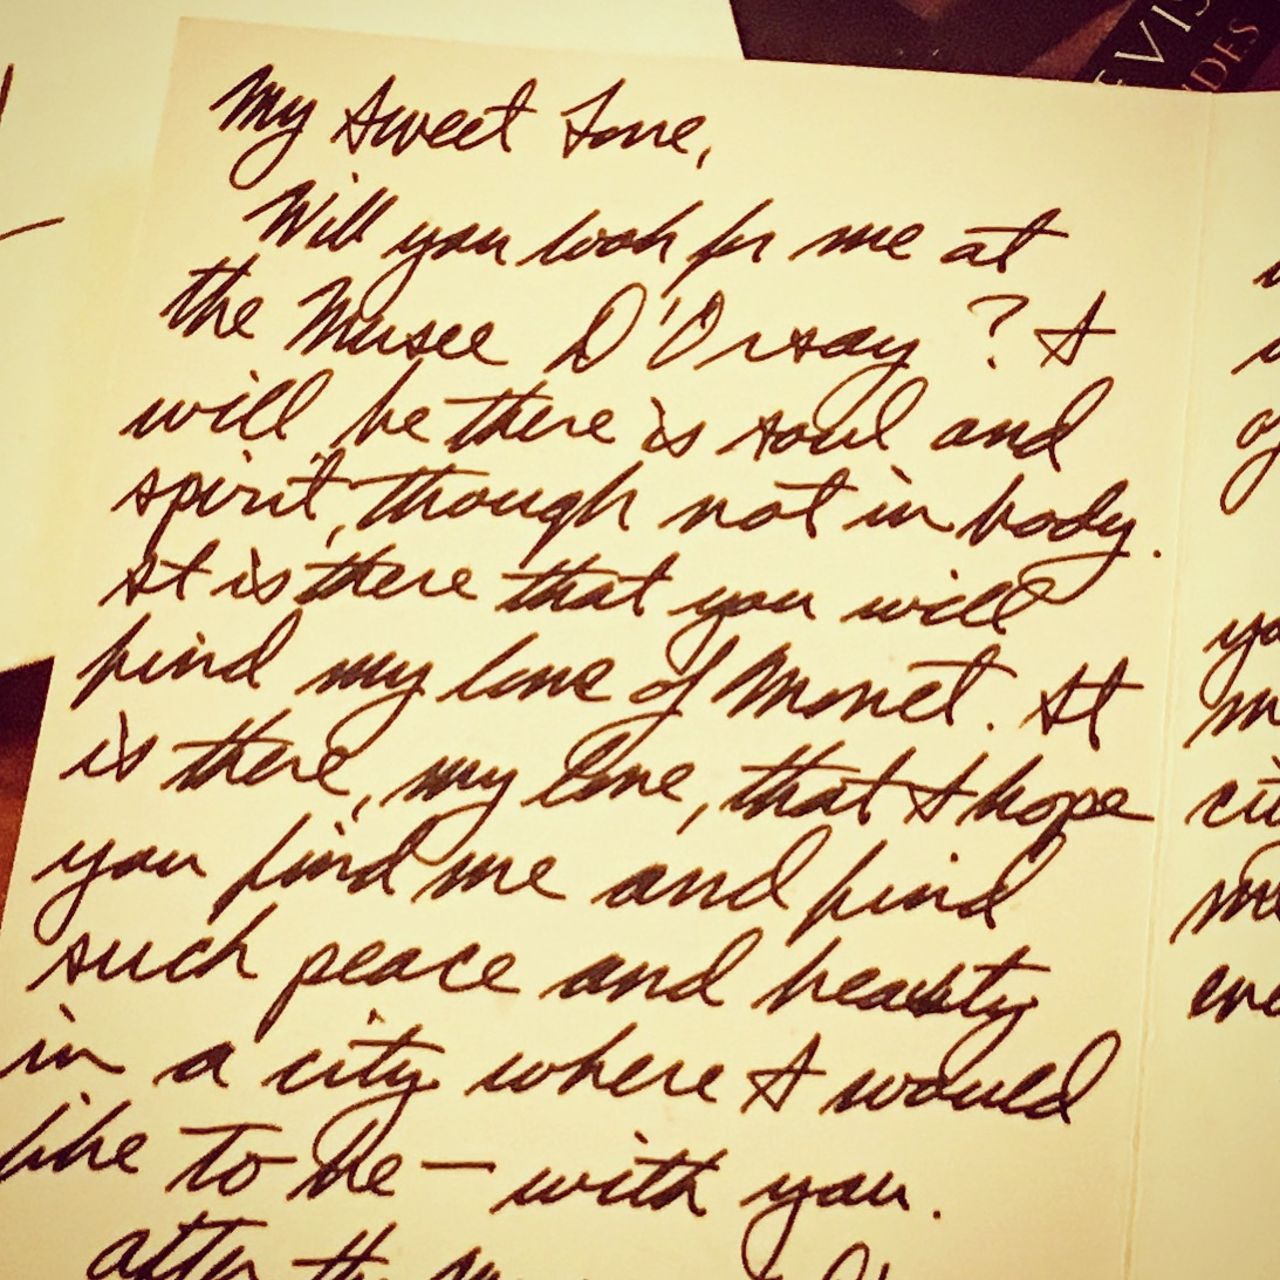 My Sweet Love,
Will you look for me at
the Musee D'Orsay? I
will be there is soul and
spirit, though not in body.
It is there that you will
find my love of Monet. It
is there, my love, that I hope
you find me and find
such peace and beauty
in a city where I would
like to be — with you.
after the